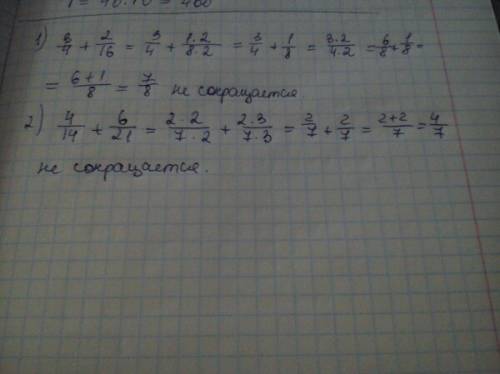 1) 3/4 + 2/16 = 3/4 + 1·2/8·2 = 3/4 + 1/8 = 3·2/4·2 = 6/8 + 1/8 =
= 6+1/8 = 7/8 не сокращается
2) 4/14 + 6/21 = 2·2/7·2 + 2·3/7·3 = 2/7 + 2/7 = 2+2/7 = 4/7
не сокращается.